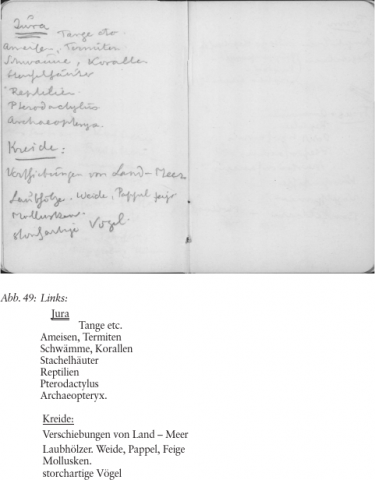 Jura
Tange etc.
Ameisen, Termiten
Schwämme, Korallen
Stachelhäuter
Reptilien
Pterodactylus
Archaeopteryx.
Kreide:
Verschiebungen von Land – Meer
Laubhölze. Weide, Pappel Feige
Mollusken.
storchartige Vögel.
Abb. 49: Links:
Jura
Tange etc.
Ameisen, Termiten
Schwämme, Korallen
Stachelhäuter
Reptilien
Pterodactylus
Archaeopteryx.
Kreide:
Verschiebungen von Land – Meer
Laubhölzer. Weide, Pappel, Feige
Mollusken.
storchartige Vögel